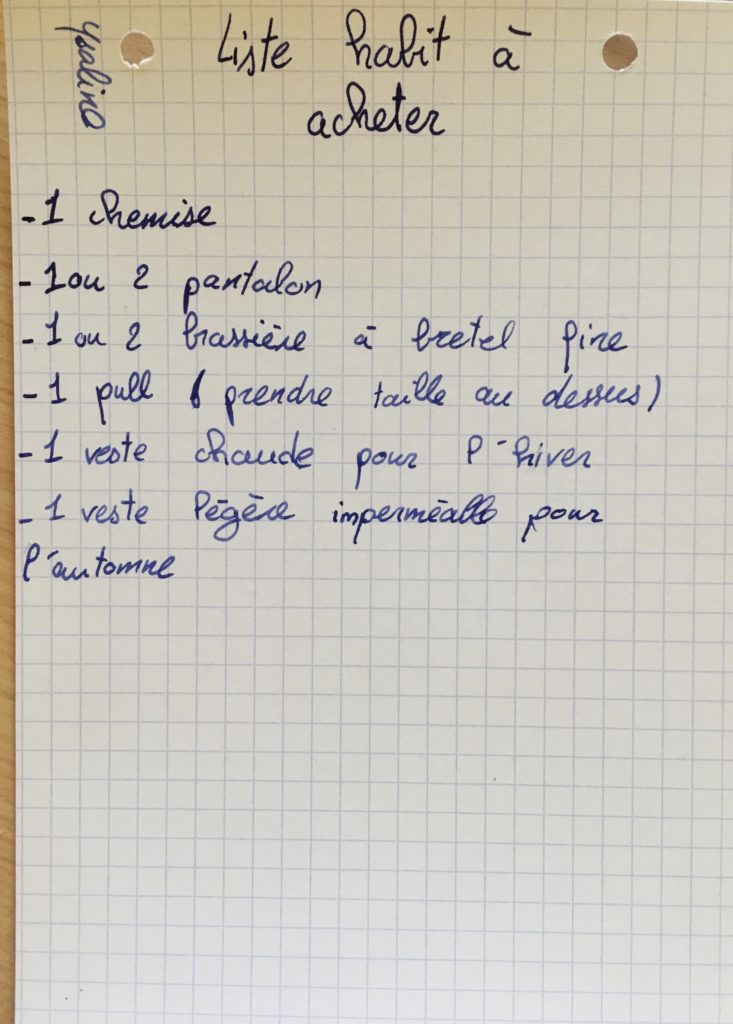 Liste habit à
acheter
- 1 chemise
- 1 ou 2 pantalon
- 1 ou 2 brassière à bretel fine
- 1 pull (prendre taille au dessus)
- 1 veste chaude pour l'hiver
- 1 veste légère imperméable pour
l'automne